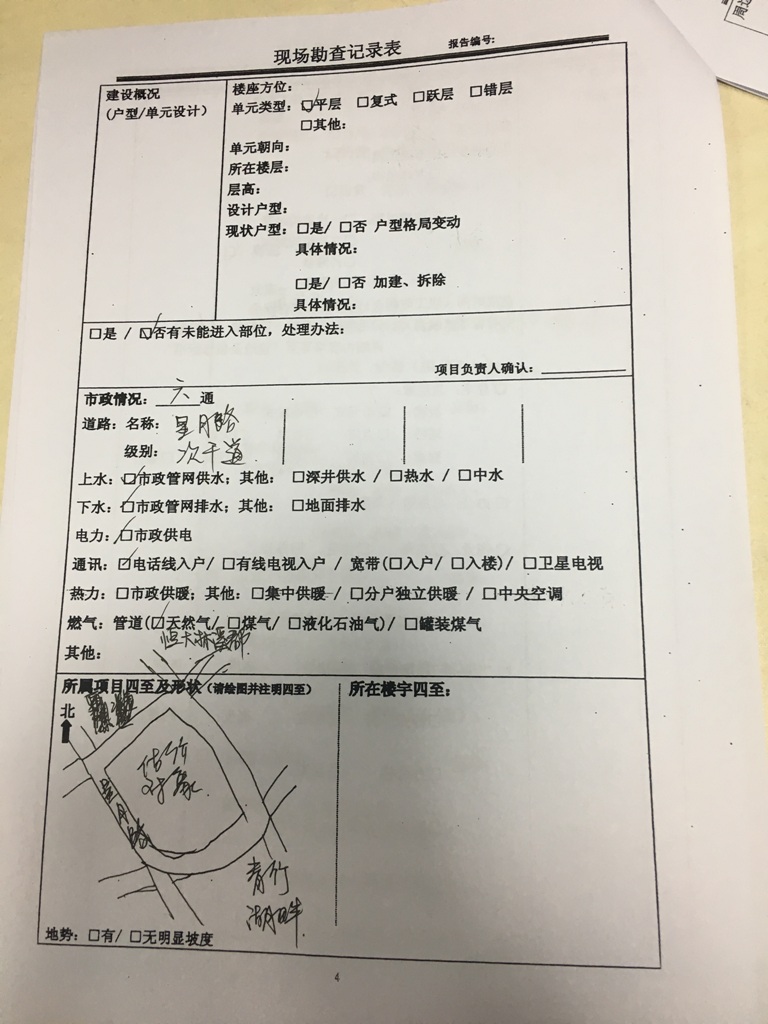 现场勘查记录表 报告编号:
建设概况
(户型/单元设计)
楼座方位:
单元类型: ☑平层 □复式 □跃层 □错层
□其他:
单元朝向:
所在楼层:
层高:
设计户型:
现状户型: □是/ □否 户型格局变动
具体情况:
□是/ □否 加建、拆除
具体情况:
□是 / ☑否有未能进入部位, 处理办法:
项目负责人确认:
市政情况: 六 通
道路: 名称: 星月路
级别: 次干道
上水: ☑市政管网供水; 其他: □深井供水 / □热水 / □中水
下水: ☑市政管网排水; 其他: □地面排水
电力: ☑市政供电
通讯: ☑电话线入户/ □有线电视入户 / 宽带(□入户/ □入楼)/ □卫星电视
热力: □市政供暖; 其他: □集中供暖 / □分户独立供暖 / □中央空调
燃气: 管道(☑天然气/ □煤气/ □液化石油气)/ □罐装煤气
其他:
所属项目四至及形状 (请绘图并注明四至)
所在楼宇四至:
北
估价
对象
星月路
青竹
湖畔
地势: □有/ □无明显坡度
4